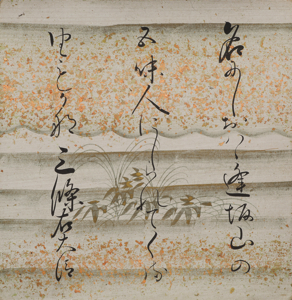 名にしおはゝ逢坂山の
五味人にしられてくる
よしもかな 三條右大臣